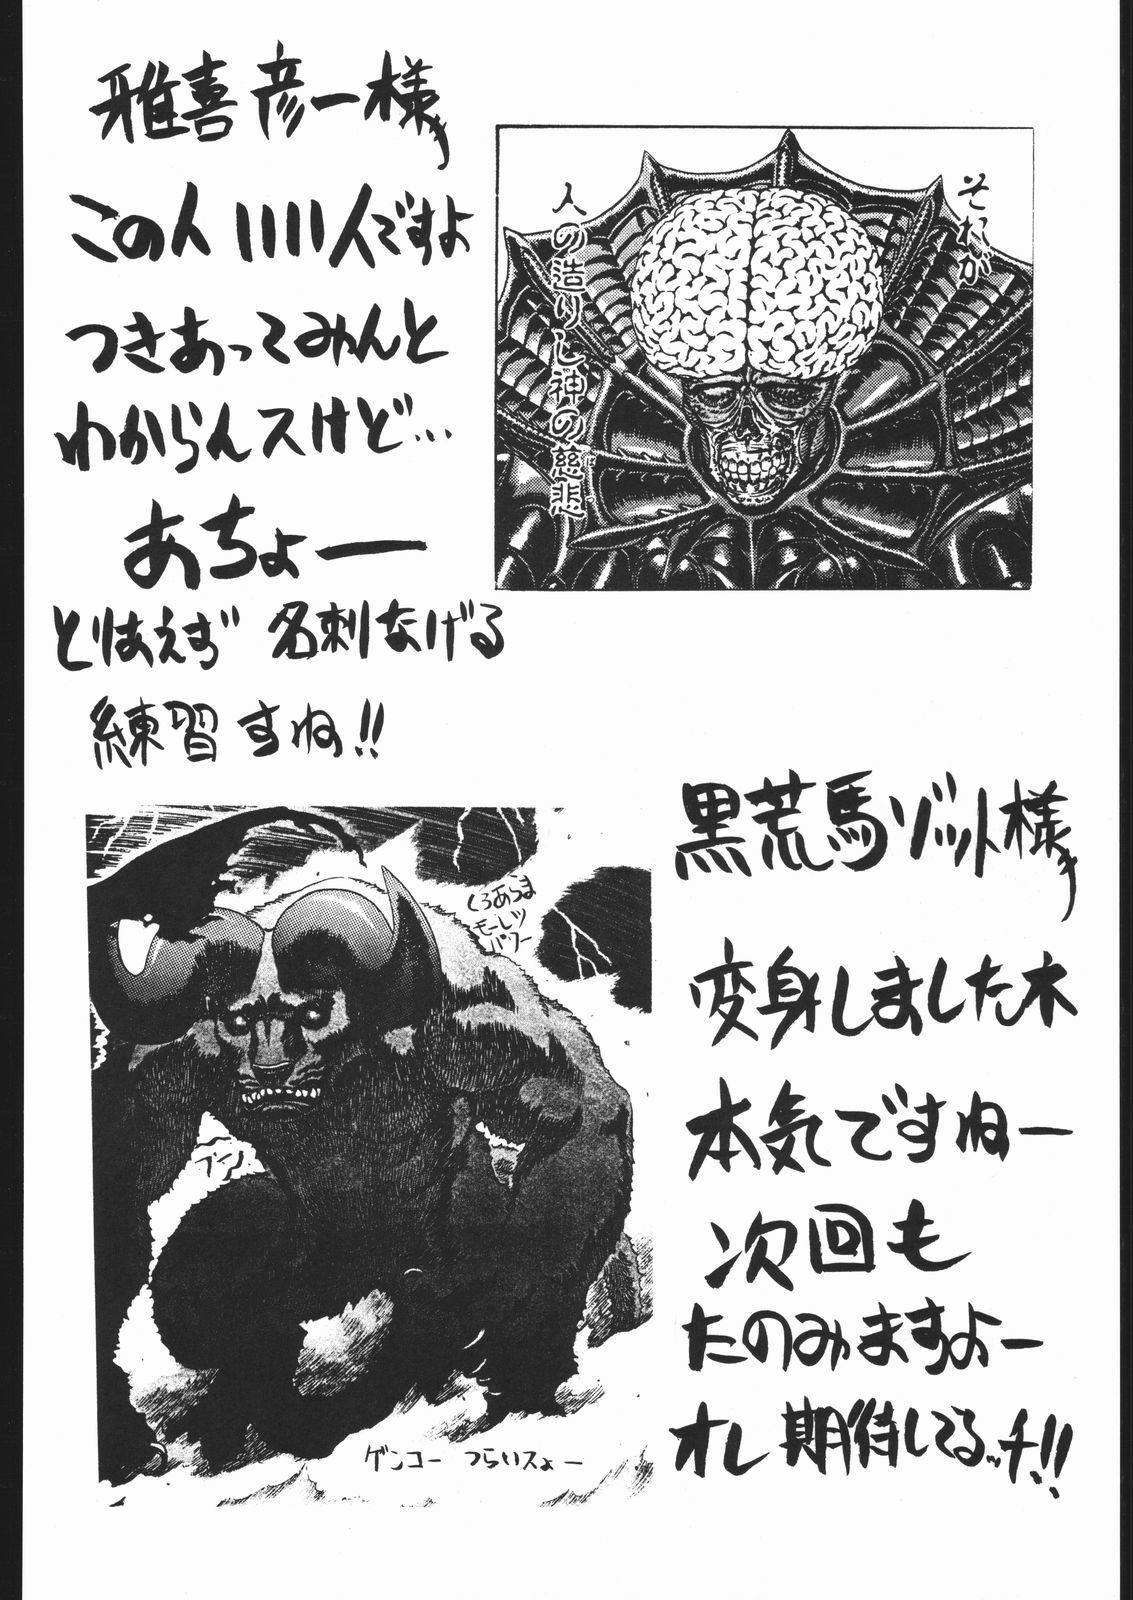 雅喜彦一様
この人いいい人ですよ
つきあってみんと
わからんスけど…
あちょー
とりはえず 名刺なげる
練習すね!!
それが
人の造りし神の慈悲
黒荒馬ゾット様
変身しましたネ
本気ですねー
次回も
たのみますよー
オレ期待してるッチ!!
くろあらま
モーレツ
パワー
ゲンコー つらいスょー